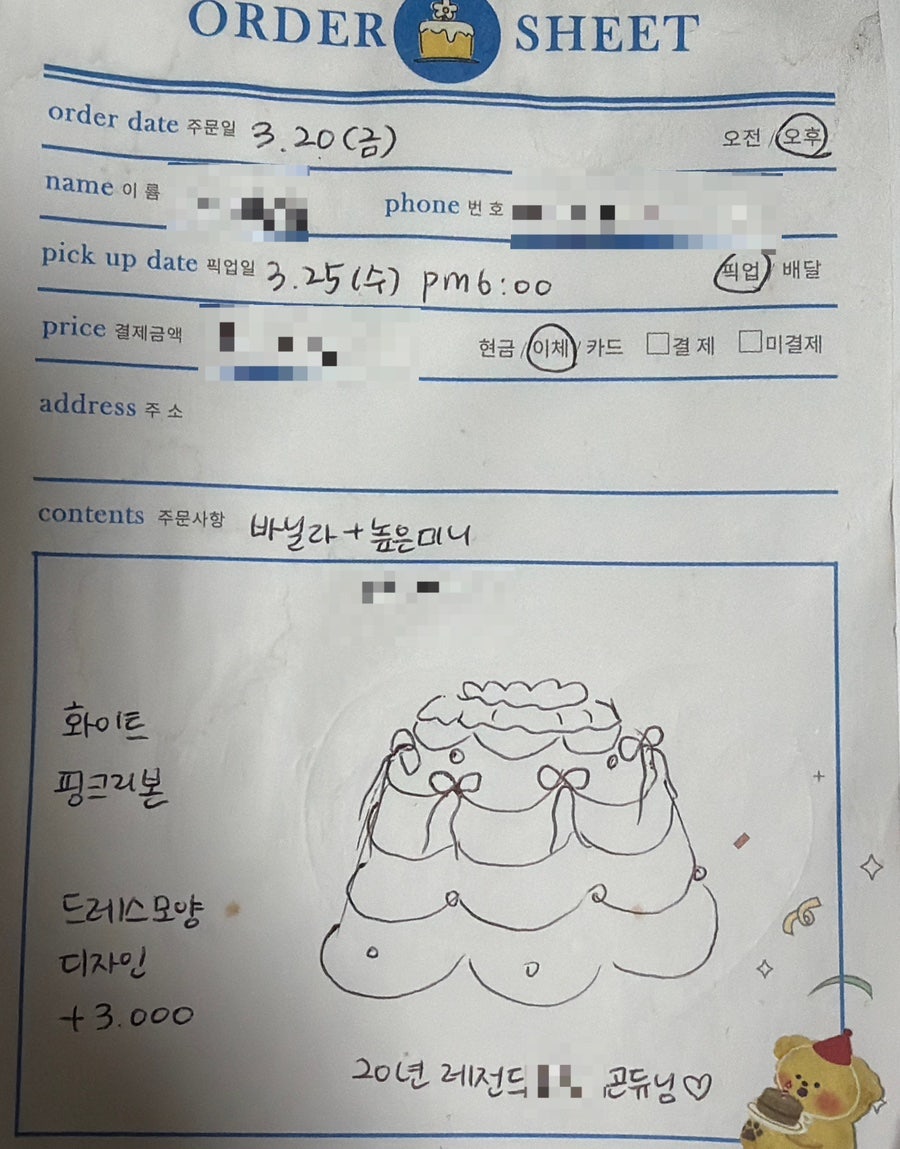 ORDER SHEET
order date 주문일 3.20(금) 오전 / 오후
name 이름 phone 번호
pick up date 픽업일 3.25(수) pm6:00 픽업 / 배달
price 결제금액 현금 / 이체 / 카드 □결제 □미결제
address 주소
contents 주문사항 바닐라+높은미니
화이트
핑크리본
드레스모양
디자인
+3.000
20년 레전드 곤듀님♡